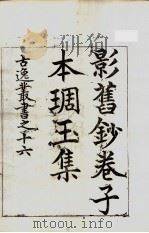 影舊鈔卷子
本琱玉集
古逸叢書之十六